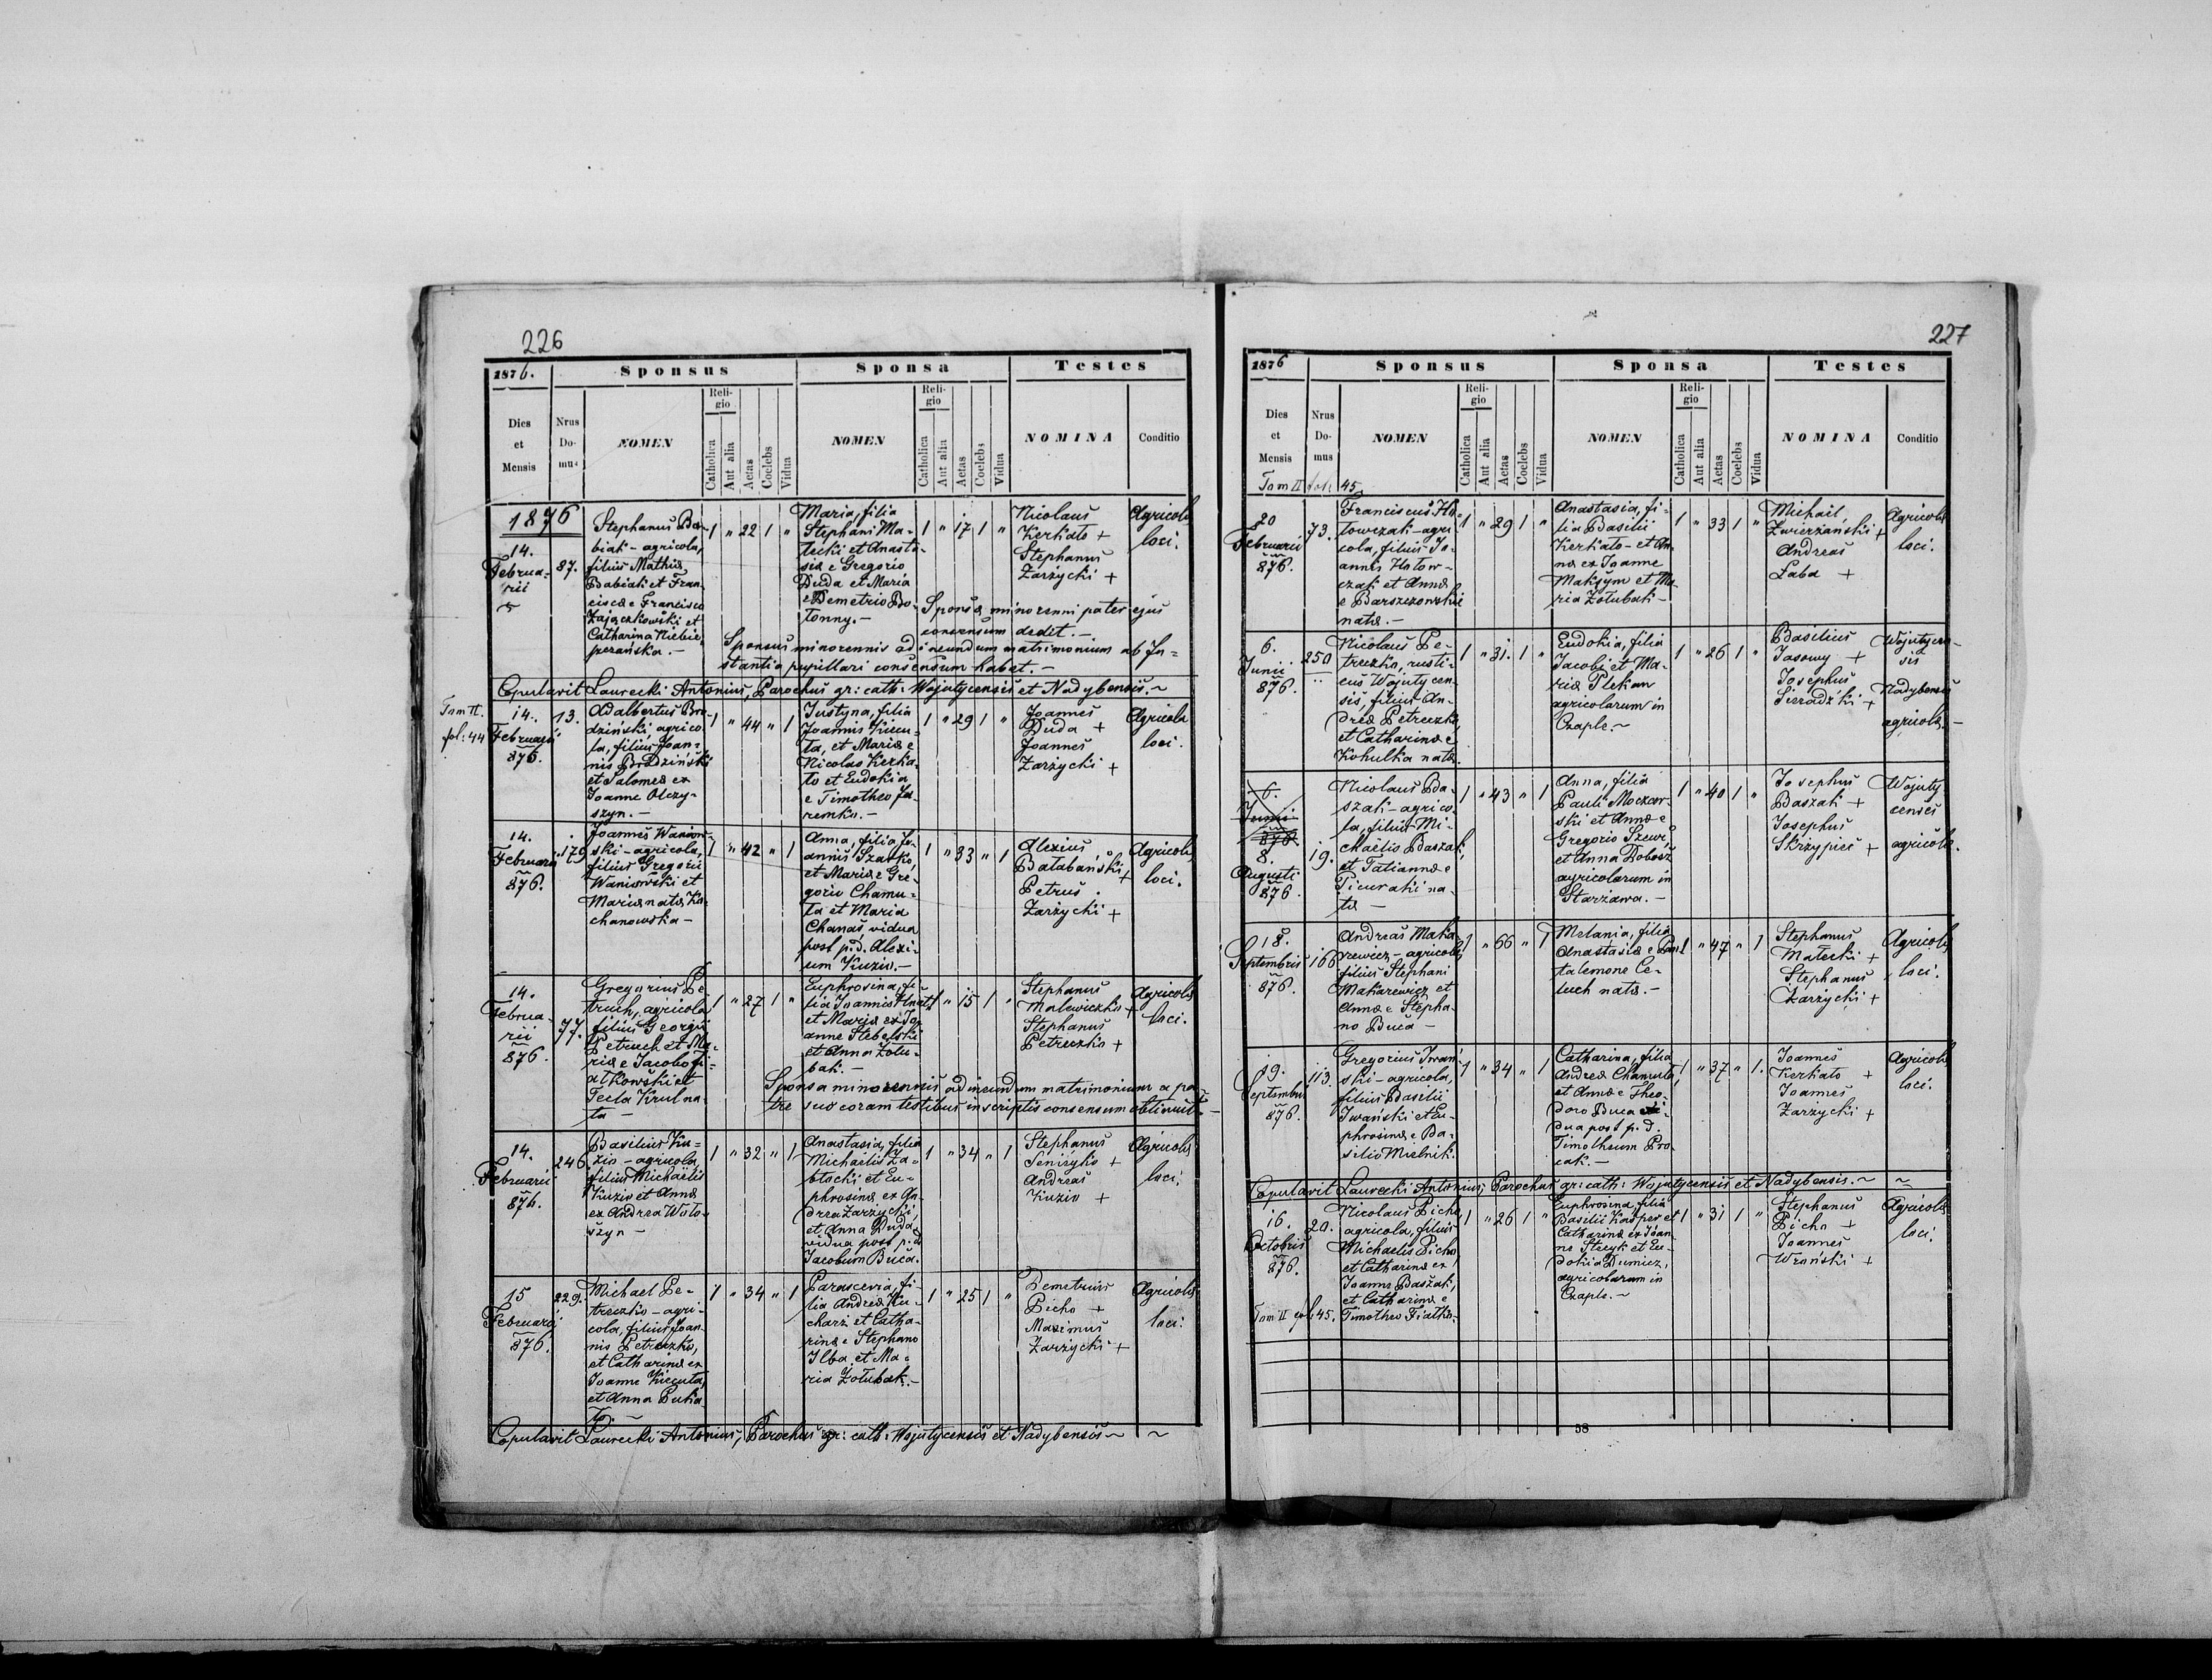 226
1876.
Sponsus
Sponsa
Testes
Dies et Mensis
Nrus Domus
NOMEN
Religio
Catholica
Aut alia
Aetas
Coelebs
Vidua
NOMEN
Religio
Catholica
Aut alia
Aetas
Coelebs
Vidua
NOMINA
Conditio
1876
14.
Februa-
rii
87.
Stephanus Ba-
biak - agricola,
filius Mathiæ
Babiak et Fran-
ciscæ e Francisco
Zajączkowski et
Catharina Niebie-
szczańska. -
1 " 22 1 "
Maria, filia
Stephani Ma-
łecki et Anasta-
siæ e Gregorio
Duda et Maria
e Demetrio Bo-
tonny. -
1 " 17 1 "
Nicolaus
Kerkało +
Stephanus
Zarzycki +
Agricolæ
loci.
Sponsæ minorenni pater ejus
consensum dedit. -
Sponsus minorennis ad ineundum matrimonium ab In-
stantia pupillari consensum habet. -
Copulavit Laurecki Antonius, Parochus gr: cath: Wojutycensis et Nadybensis. ~
Tom II.
fol: 44
14.
Februarii
876.
13.
Adalbertus Bro-
dzinski, agrico-
la, filius Joan-
nis Brodzinski
et Salomea ex
Joanne Olczy-
szyn. -
1 " 44 " 1
Justyna, filia
Joannis Kiecu-
ta, et Mariæ e
Nicolao Kerka-
ło et Eudokia
e Timotheo Ja-
remko. -
1 " 29 1 "
Joannes
Duda +
Joannes
Zarzycki +
Agricolæ
loci.
14.
Februarii
876.
179
Joannes Waniow-
ski - agricola,
filius Gregorii
Waniowski et
Mariæ natæ Ko-
chanowska -
1 " 42 " 1
Anna, filia Jo-
annis Szarko,
et Mariæ e Gre-
gorio Chamu-
ła et Maria
Chanas, vidua
post p.d. Alexi-
um Kuziw. -
1 " 33 " 1
Alexius
Bałabański +
Petrus
Zarzycki +
Agricolæ
loci.
14.
Februa-
rii
876.
77.
Gregorius Pe-
truch, agricola
filius Georgii
Petruch et Ma-
riæ e Jacobo Fi-
ałkowski et
Tecla Krul na-
ta -
1 " 27 1 "
Euphrosina, fi-
lia Joannis Hnat,
et Mariæ ex Jo-
anne Stebelski
et Anna Zołu-
bak. -
1 " 15 1 "
Stephanus
Malewiczko +
Stephanus
Petreczko +
Agricolæ
loci.
Sponsa minorennis ad ineundum matrimonium a pa-
tre suo coram testibus inscriptis consensum obtinuit. -
14.
Februarii
876.
246
Basilius Ku-
ziw - agricola,
filius Michaelis
Kuziw et Annæ
ex Andrea Woło-
szyn -
1 " 32 " 1
Anastasia, filia
Michaelis Za-
błocki et Eu-
phrosinæ ex An-
drea Zarzycki,
et Anna Duda
vidua post p.d.
Jacobum Buca.
1 " 34 " 1
Stephanus
Seniżyko +
Andreas
Kuziw +
Agricolæ
loci.
15
Februarii
876.
229.
Michael Pe-
treczko - agri-
cola, filius Joan-
nis Petreczko,
et Catharinæ ex
Joanne Kiecuta,
et Anna Buka-
ło. -
1 " 34 " 1
Parascevia, fi-
lia Andreæ Ku-
charz et Catha-
rinæ e Stephano
Ilba et Ma-
ria Zołubak. -
1 " 25 1 "
Demetrius
Picho +
Maximus
Zarzycki +
Agricolæ
loci.
Copulavit Laurecki Antonius, Parochus gr: cath: Wojutycensis et Nadybensis ~ ~
227
1876
Sponsus
Sponsa
Testes
Dies et Mensis
Nrus Domus
NOMEN
Religio
Catholica
Aut alia
Aetas
Coelebs
Vidua
NOMEN
Religio
Catholica
Aut alia
Aetas
Coelebs
Vidua
NOMINA
Conditio
Tom II fol: 45
20
Februarii
876.
73.
Franciscus Ho-
łowczak - agri-
cola, filius Jo-
annis Hołow-
czak et Annæ
e Barszczowskie
natæ. -
1 " 29 1 "
Anastasia, fi-
lia Basilii
Kerkało - et An-
næ ex Joanne
Maksym et Ma-
ria Zołubak -
1 " 33 1 "
Michael
Zwierzański +
Andreas
Łaba +
Agricolæ
loci.
6.
Junii
876.
250
Nicolaus Pe-
treczko, rusti-
cus Wojutycen-
sis, filius An-
dreæ Petreczko,
et Catharinæ e
Kohulka natæ.
1 " 31. 1 "
Eudokia, filia
Jacobi et Ma-
riæ Plekan
agricolarum in
Czaple. ~
1 " 26 1 "
Basilius
Jasowy +
Josephus
Sieradzki +
Wojutycen-
sis
Nadybensis
agricolæ. -
6.
Junii
876
8.
Augusti
876.
19.
Nicolaus Ba-
szak - agrico-
la, filius Mi-
chaelis Baszak,
et Tatiannæ e
Picurski na-
tæ -
1 " 43 " 1
Anna, filia
Pauli Moczar-
ski et Annæ e
Gregorio Szewc
et Anna Dobosz
agricolarum in
Starzawa. -
1 " 40 1 "
Josephus
Baszak +
Josephus
Skrzypiec +
Wojuty
censes
agricolæ.
18.
Septembris
876.
166
Andreas Maka-
rewicz - agricola,
filius Stephani
Makarewicz et
Annæ e Stepha-
no Buca -
1 " 66 " 1
Melania, filia
Anastasiæ e Pan-
talemone Ce-
luch natæ. -
1 " 47 " 1
Stephanus
Małecki +
Stephanus
Zarzycki +
Agricolæ
loci.
19.
Septembris
876.
113.
Gregorius Iwań-
ski - agricola,
filius Basilii
Iwański et Eu-
phrosinæ e Ba-
silio Mielnik.
1 " 34 " 1
Catharina, filia
Andreæ Chamuła,
et Annæ e Theo-
doro Buca vi-
dua post p.d.
Timotheum Pro-
cak. -
1 " 37 " 1.
Joannes
Kerkało +
Joannes
Zarzycki +
Agricolæ
loci.
Copulavit Laurecki Antonius, Parochus gr: cath: Wojutycensis et Nadybensis. ~ ~
16.
Octobris
876.
20.
Nicolaus Picho
agricola, filius
Michaelis Picho
et Catharinæ ex
Joanne Baszak,
et Catharina e
Timotheo Fiałko.
1 " 26 1 "
Euphrosina, filia
Basilii Kasper et
Catharinæ ex Joan-
ne Strcyk et Eu-
dokia Dumicz,
agricolarum in
Czaple. ~
1 " 31 1 "
Stephanus
Picho +
Joannes
Wrański +
Agricolæ
loci.
Tom II fol. 45.
58